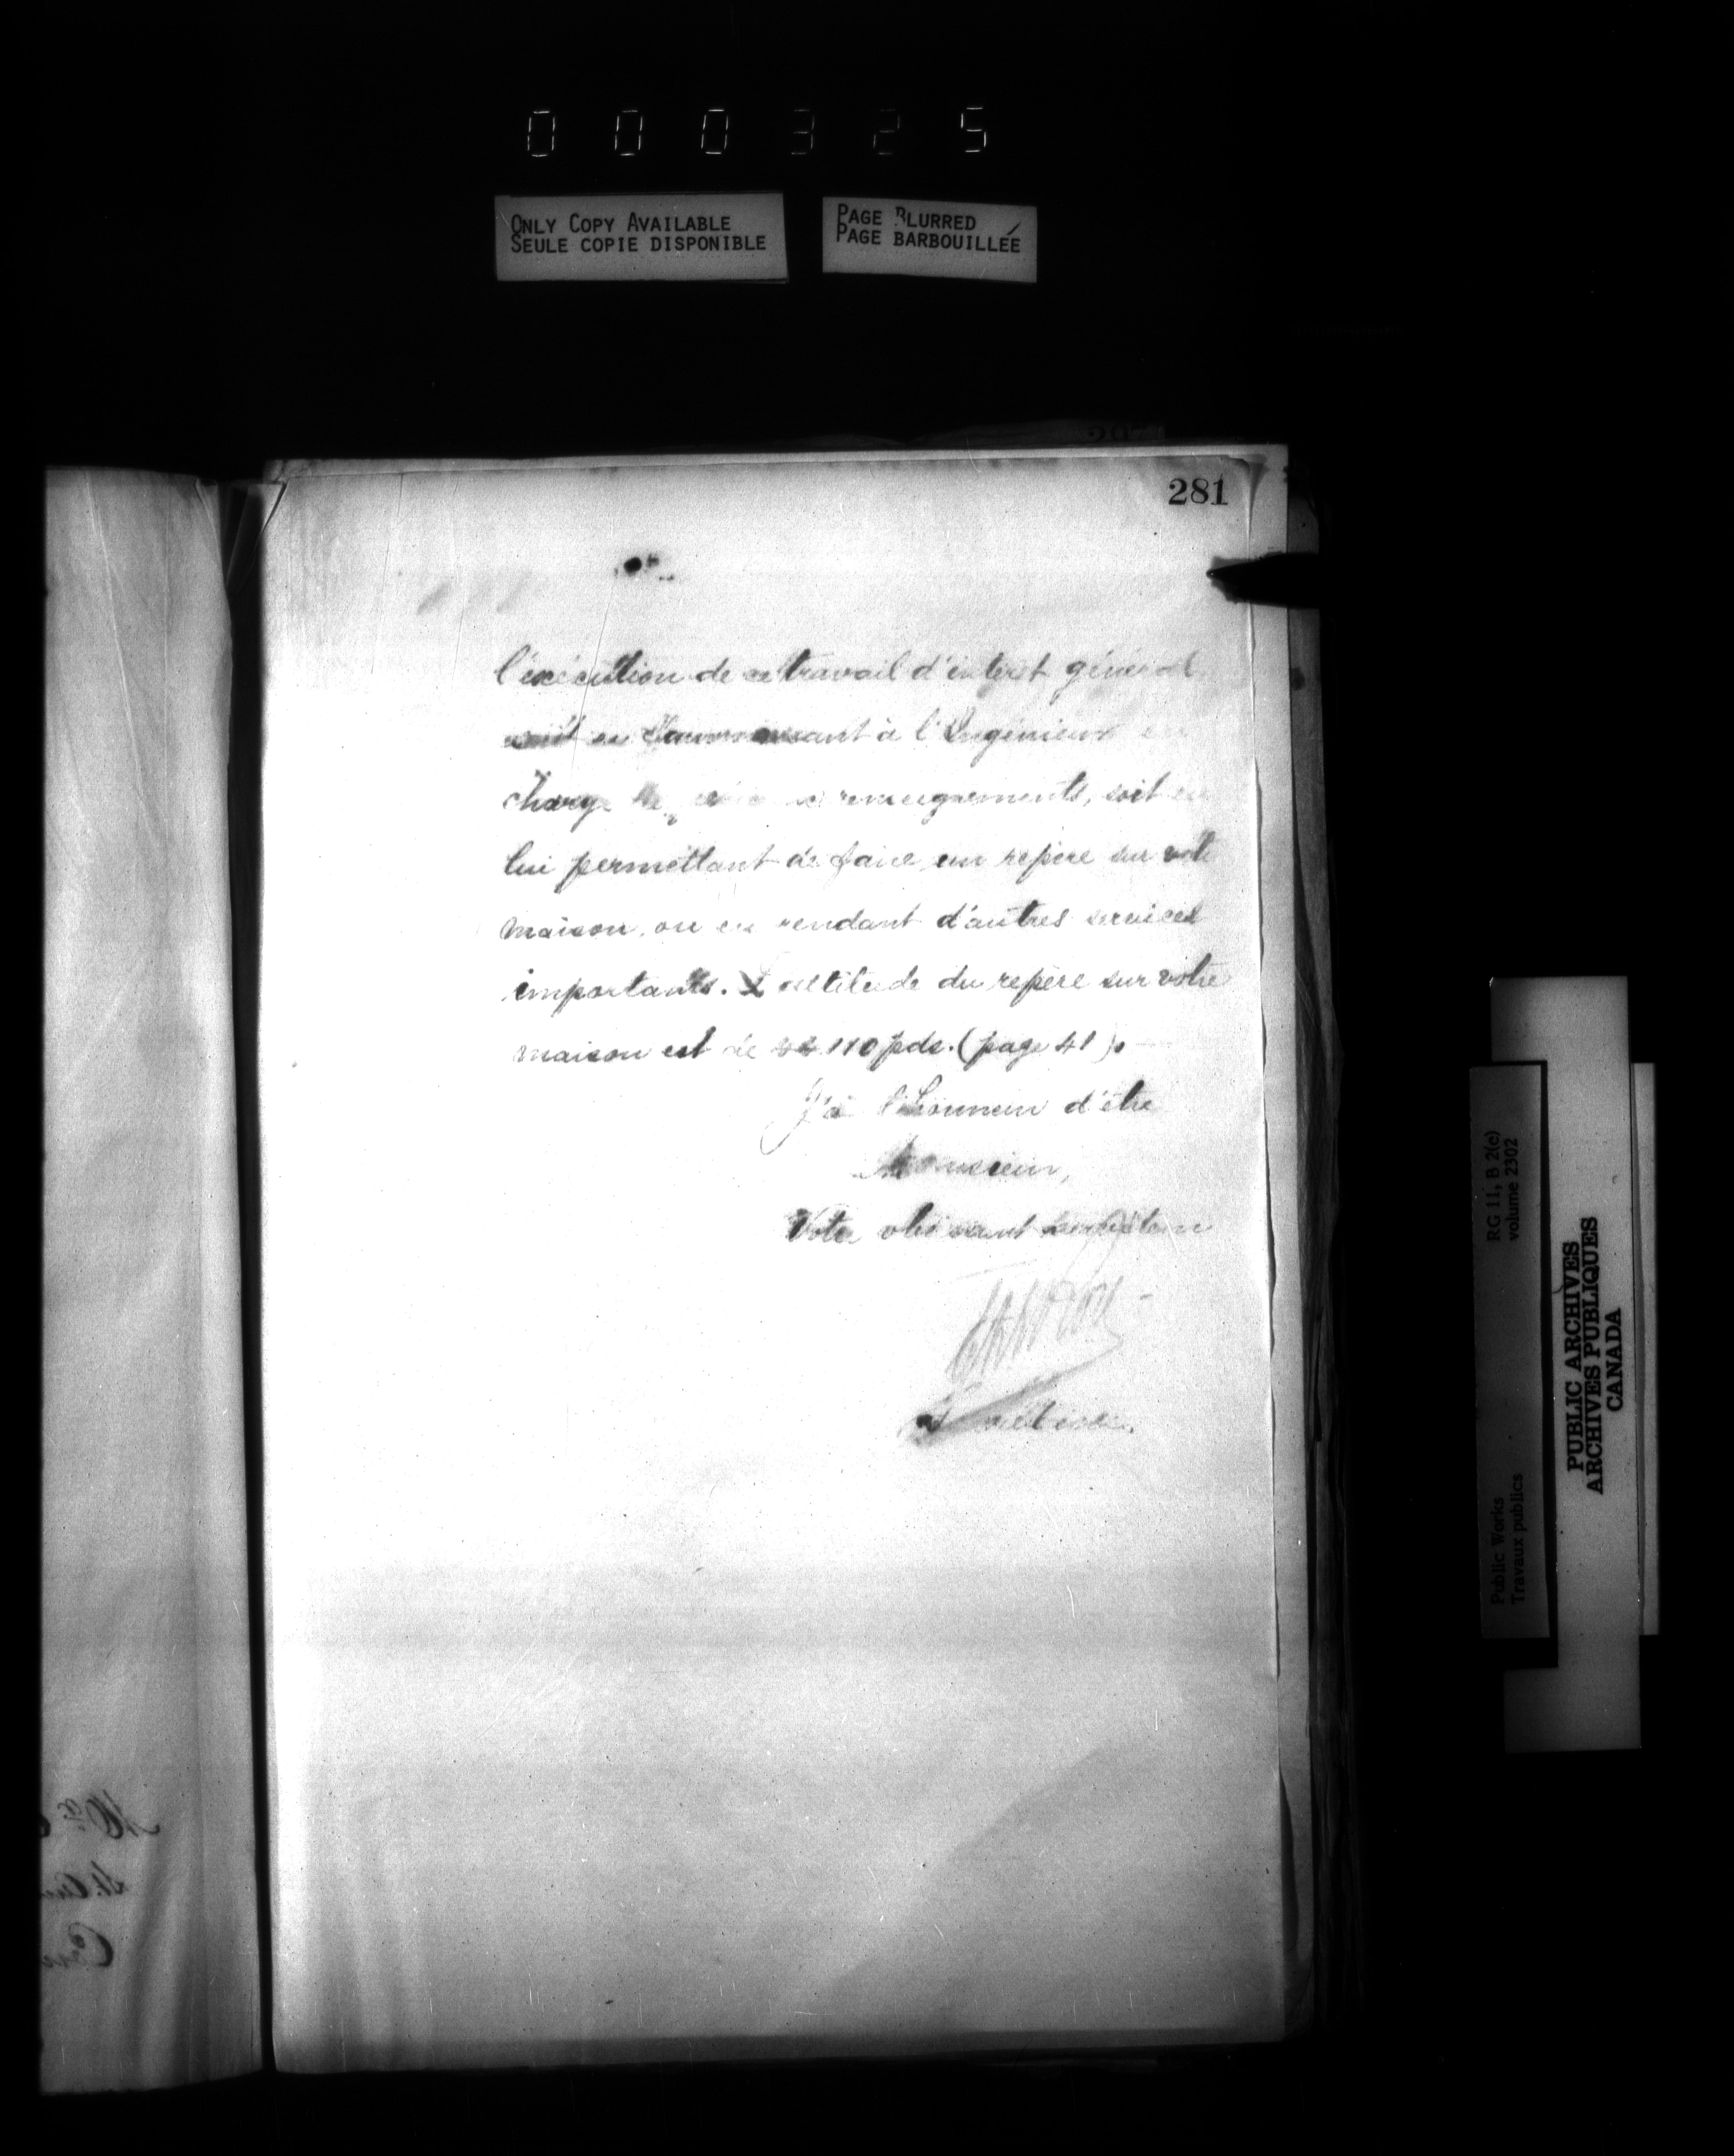 000325
ONLY COPY AVAILABLE
SEULE COPIE DISPONIBLE
PAGE BLURRED
PAGE BARBOUILLÉE
281
l'exécution de ce travail d'intérêt général
soit en à l'Ingénieur en
charge renseignements, soit en
lui permettant de faire un repère sur votre
maison, ou en rendant d'autres services
importants. L'altitude du repère sur votre
maison est de 110 pds. (page 41).
J'ai l'honneur d'être
Monsieur,
Votre obéissant serviteur
RG 11, B 2(c)
volume 2302
Public Works
Travaux publics
PUBLIC ARCHIVES
ARCHIVES PUBLIQUES
CANADA